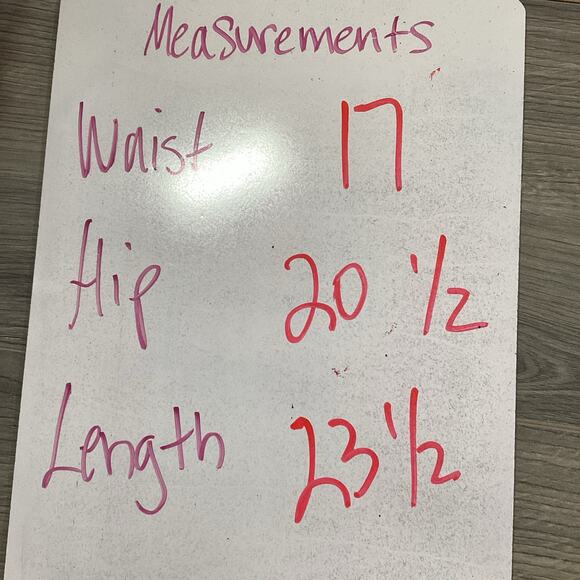 Measurements
Waist 17
Hip 20 1/2
Length 23 1/2